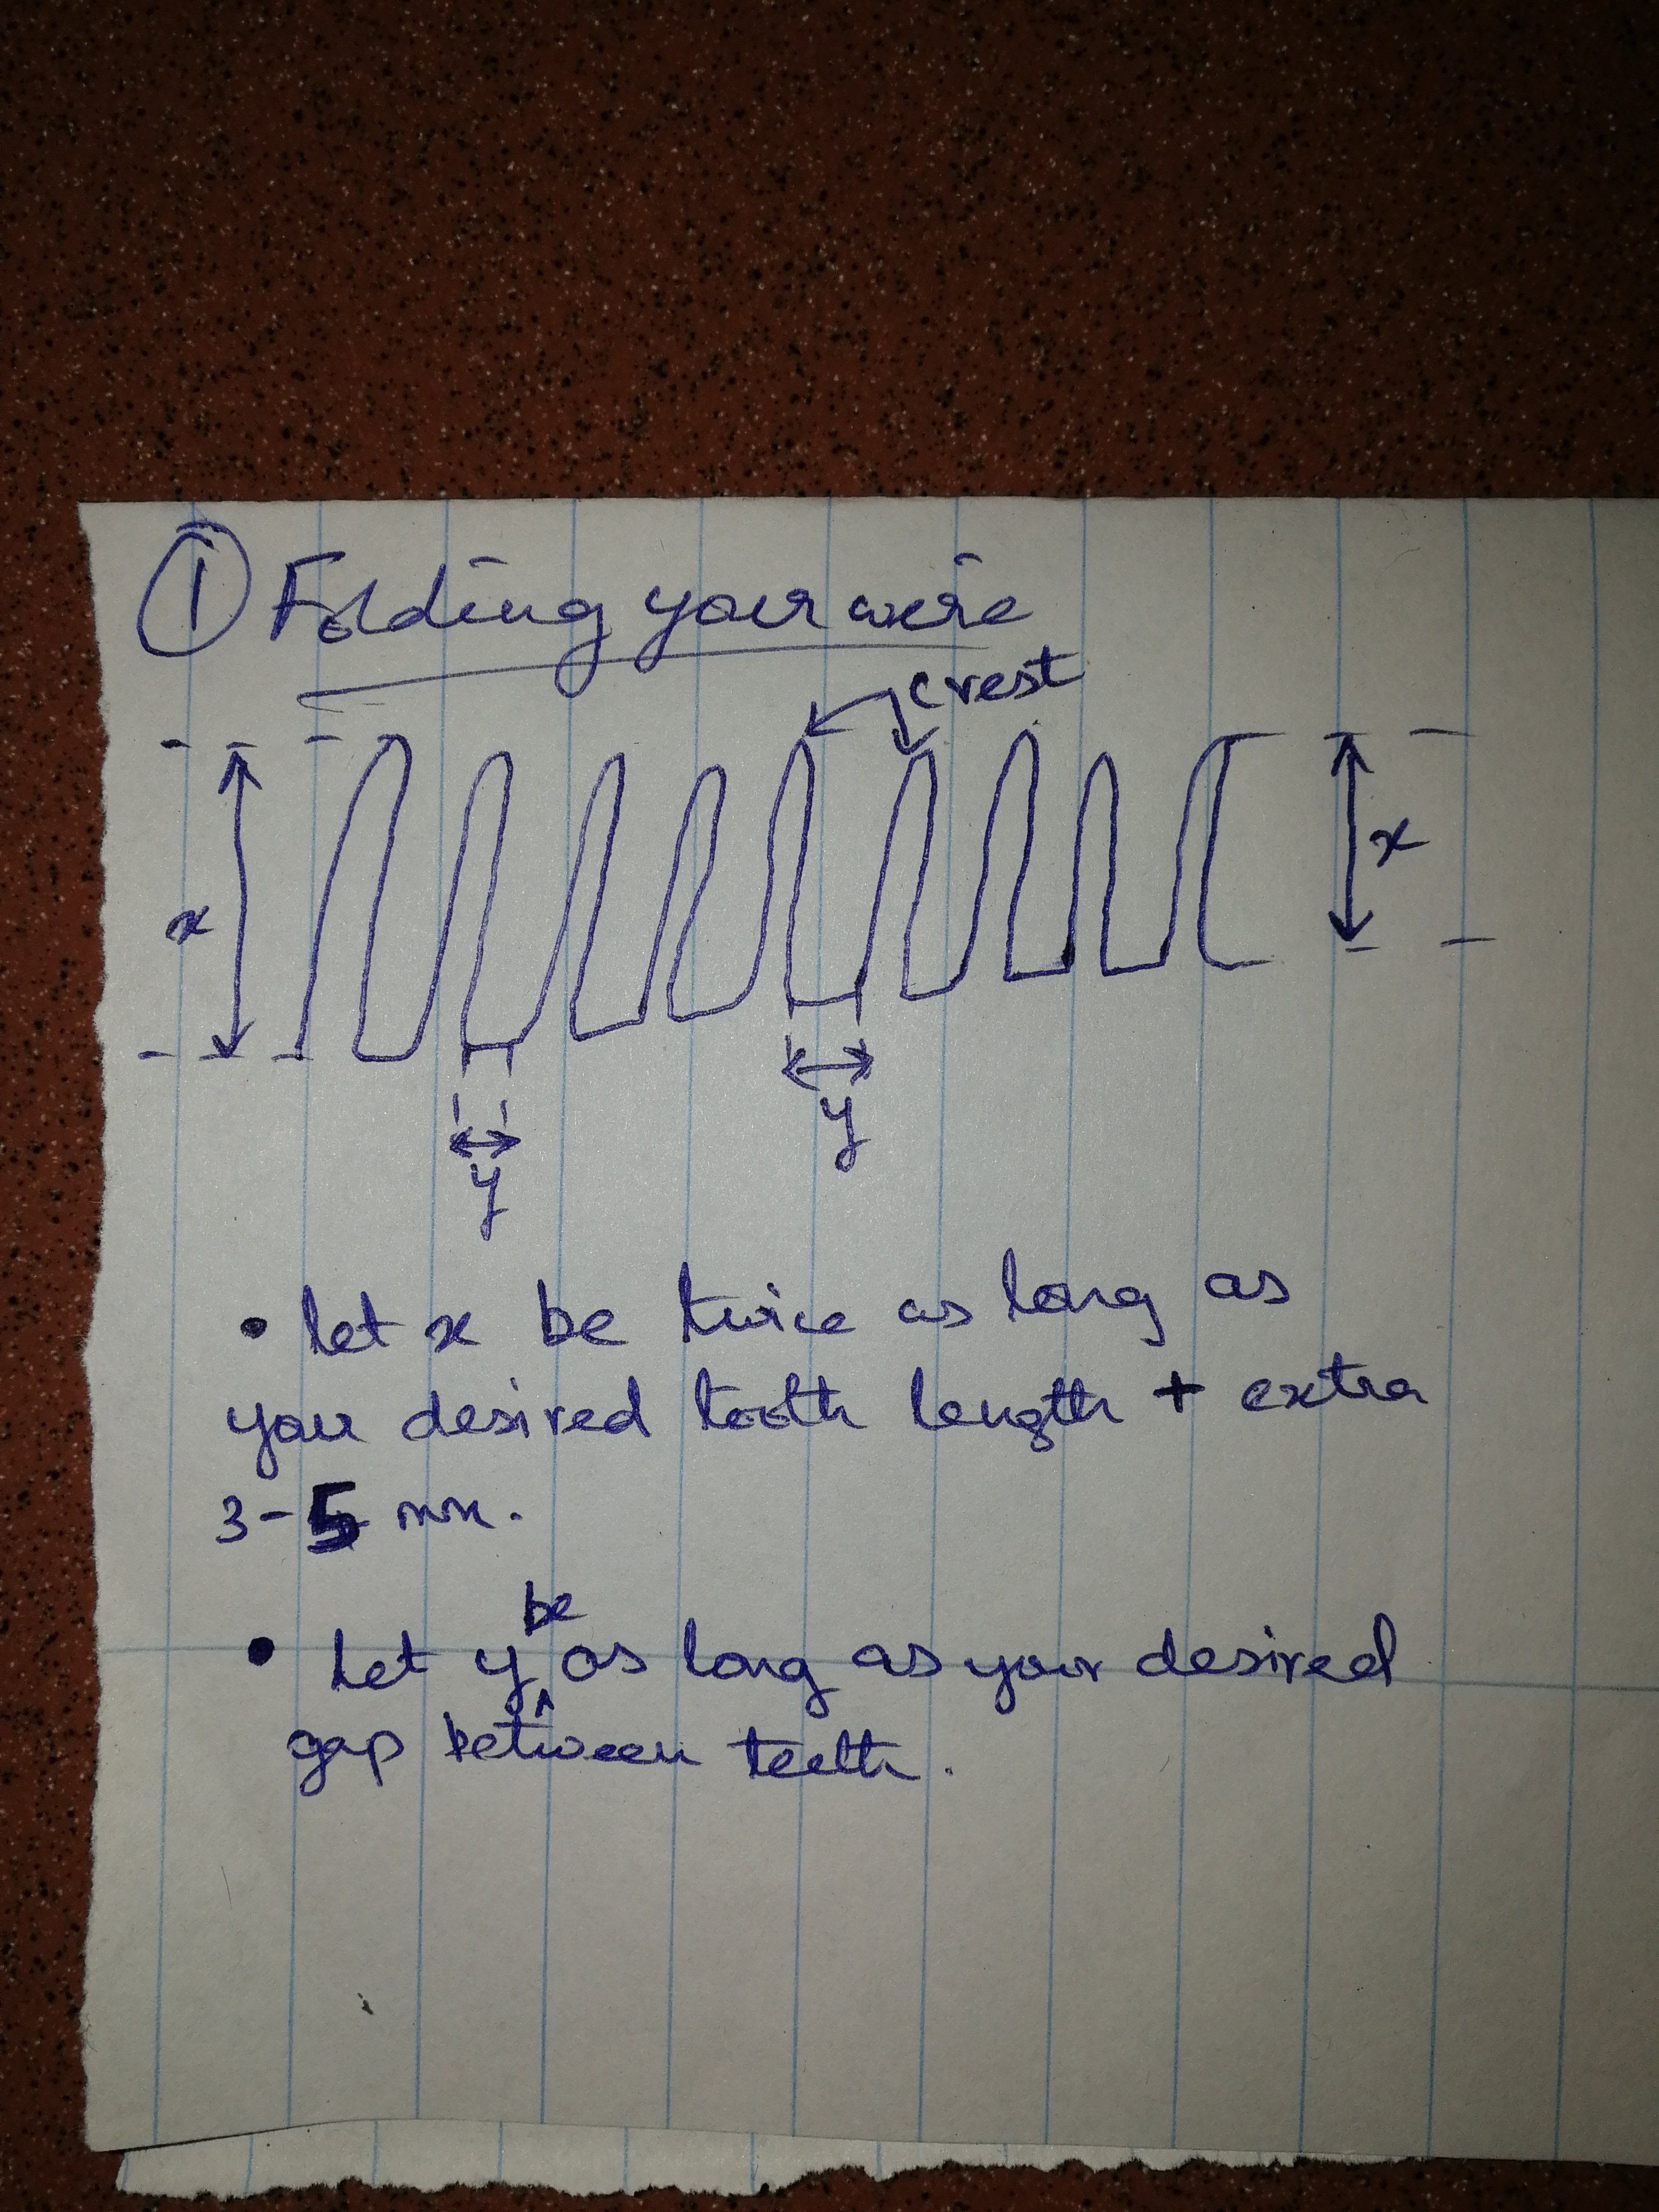 ① Folding your wire
crest
x
x
y
y
• let x be twice as long as
your desired tooth length + extra
3-5 mm.
• Let y be as long as your desired
gap between teeth.